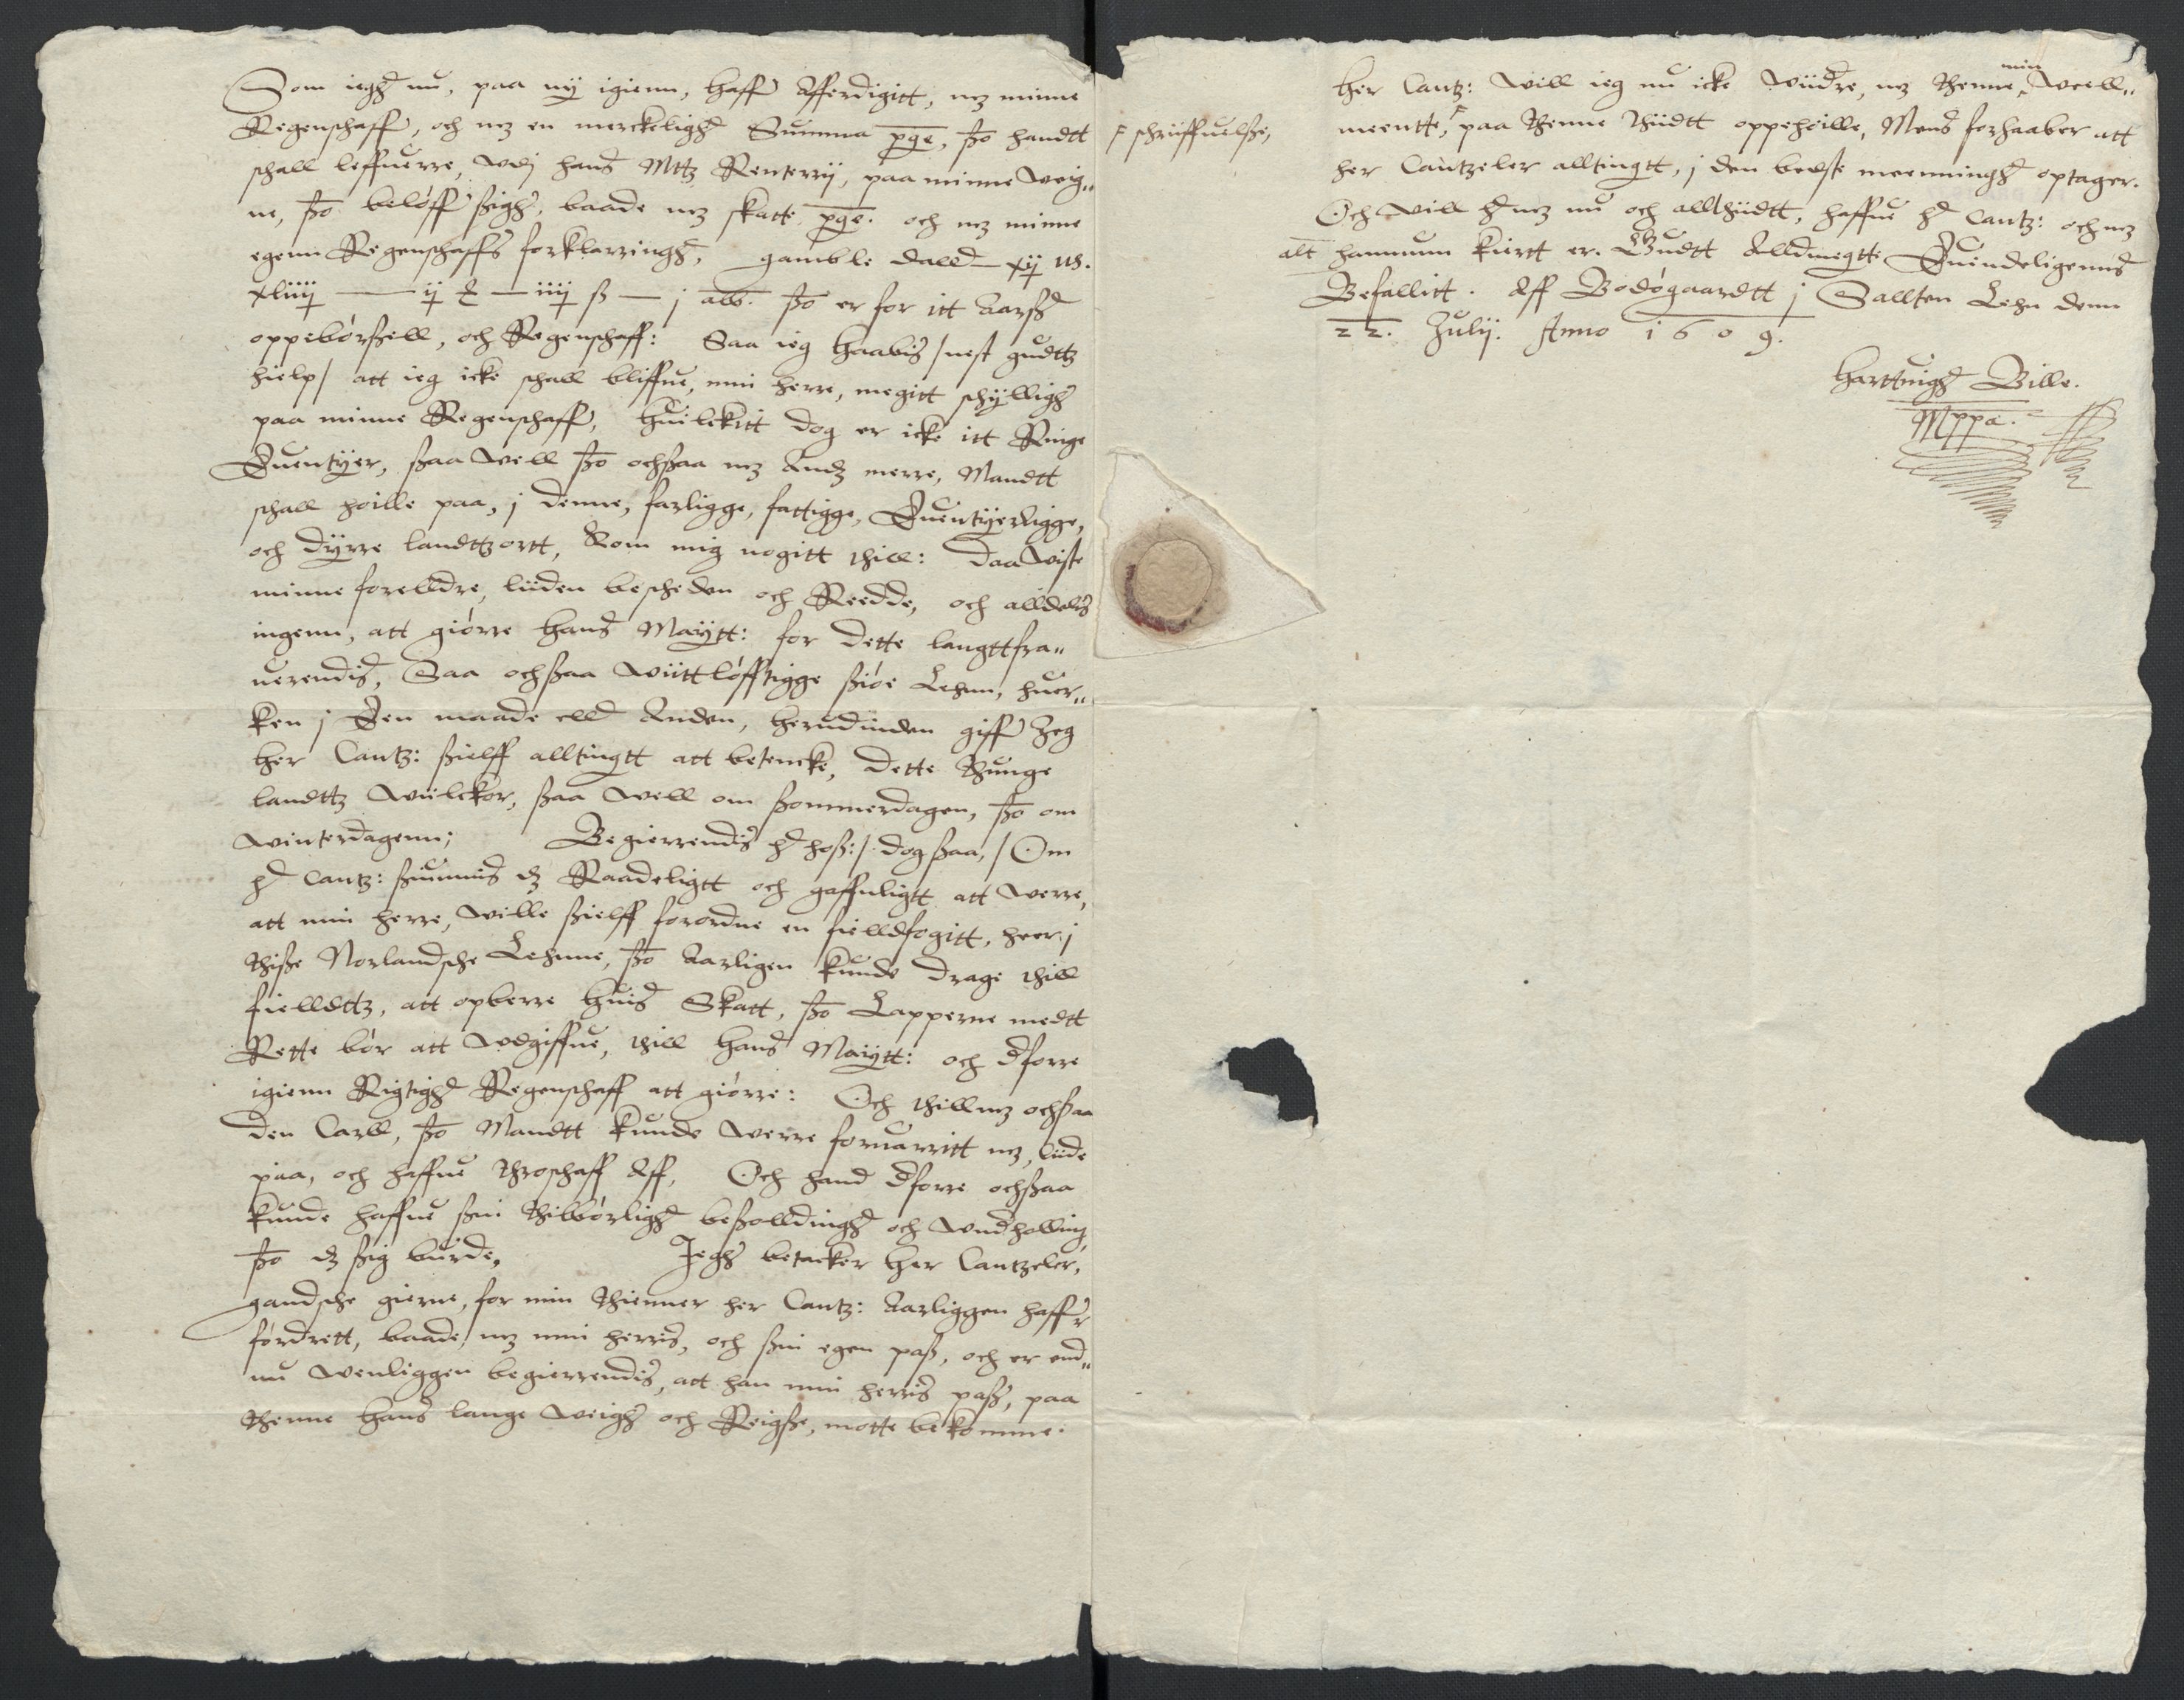 Som iegh nu, paa nÿ igienn, haffr Afferdigitt, mz minne
Regenschaff, och mz en merckeligh Summa pge, ßo handtt
schall leffuerre, wdj hans Mttz Renterrij, paa minne Weig„
ne, ßo beløff ßigh, baade mz skatte pge. och mz minne
egenn Regenschaffs forklarringh, gamble dalld xij us.
xliiij — ij — iiij ß — j alb. ßo er for itt Aarß
oppebørßell, och Regenschaff: Saa ieg haabis / nest gudttz
hielp / att ieg icke schall bliffue, min herre, megitt schÿlligh
paa minne Regenschaff, huilckitt dog er icke itt Ringe
Euentÿer, ßaa well ßo ochßaa mz Andz merre, Mandtt
schall hoille paa, j denne, farligge, fattigge, Euentÿerligge,
och dÿrre landttzortt, Kom mig nogitt thill: daa wiste
minne forelldre, liiden bescheden och Reedde, och alldelis
ingenn, att giørre hans Maÿtt: for dette langttfra„
uerendis, Saa ochßaa wiittløfftigge ßiøe Lehnn, huer„
ken j Een maade elld Anden, herudinden giffr Jeg
her Cantz: ßielff alltingtt att betencke, dette thunge
landttz wiilckor, ßaa well om ßommerdagen, ßo om
winterdagenn; Begierrendis hd hoß: / dog ßaa, / Om
hd Cantz: ßuunnis dz Raadeligtt och gaffnligtt att werre,
att min herre, wille ßielff forordne en fielldfogitt, heer j
thiße Norlandsche Lehnne, ßo Aarligen kunde drage thill
fielldttz, att opberre huis Skatt, ßo Lapperne medtt
Rette bør att wdgiffue, thill hans Maiÿtt: och dforre
igienn Rigtigh Regenschaff att giørre: Och thillmz ochßaa
den Carll, ßo Mandtt kunde werre foruarritt mz, liide
paa, och haffue throschaff Aff, Och hand dforre ochßaa
kunde haffue ßin thilbørligh beßolldingh och wndholling
ßo dz ßig burde, Jegh betacker her Cantzeler,
gandsche gierne, for min thienner her Cantz: Aarliggen haffr
fordrett, baade mz min herris, och ßin egen paß, och er end„
nu wenliggen begierrendis, att han min herris paß, paa
thenne hans lange weigh och Reigße, motte bekomme.
her Cantz: will ieg nu icke wiidre, mz thenne min well„
F schriiffuelße,
meentte, F paa thenne thiidtt oppehoille, Mens forhaaber att
her Cantzeler alltingtt, j den bedste meenningh optager.
Och will hd mz nu och allthiidtt, haffue hd Cantz: och mz
alt hannum kiertt er. Gudtt Alldmegtte Euindeligenns
Befallitt. Aff Bodøgaardtt j Sallten Lehn denn
22. Julij. Anno 1609.
Harttuigh Bille.
Mppa.